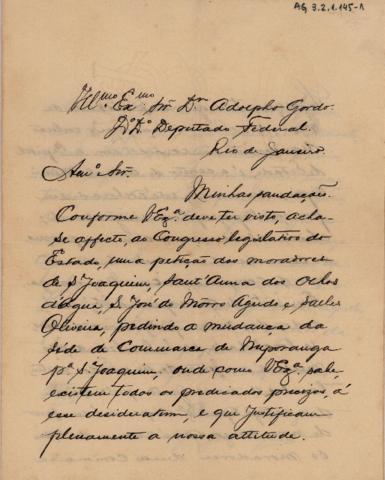 AG 3.2.1.145-1
Ill.mo Ex.mo Snr Dr Adolpho Gordo.
D.D. Deputado Federal.
Rio de Janeiro.
Amo Snr.
Minhas saudações.
Conforme V Exª. deve ter visto, acha-
se affecto, ao Congresso legislativo do
Estado, uma petição dos moradores
de S. Joaquim, Sant' Anna dos Olhos
d'agua, S. José do Morro Agudo e Salles
Oliveira, pedindo a mudança da
séde de Commarca de Nuporanga
pª S. Joaquim, onde como V Exª. sabe,
existem todos os predicados precizos, á
esse desideratum, e que justificam
plenamente a nossa attitude.